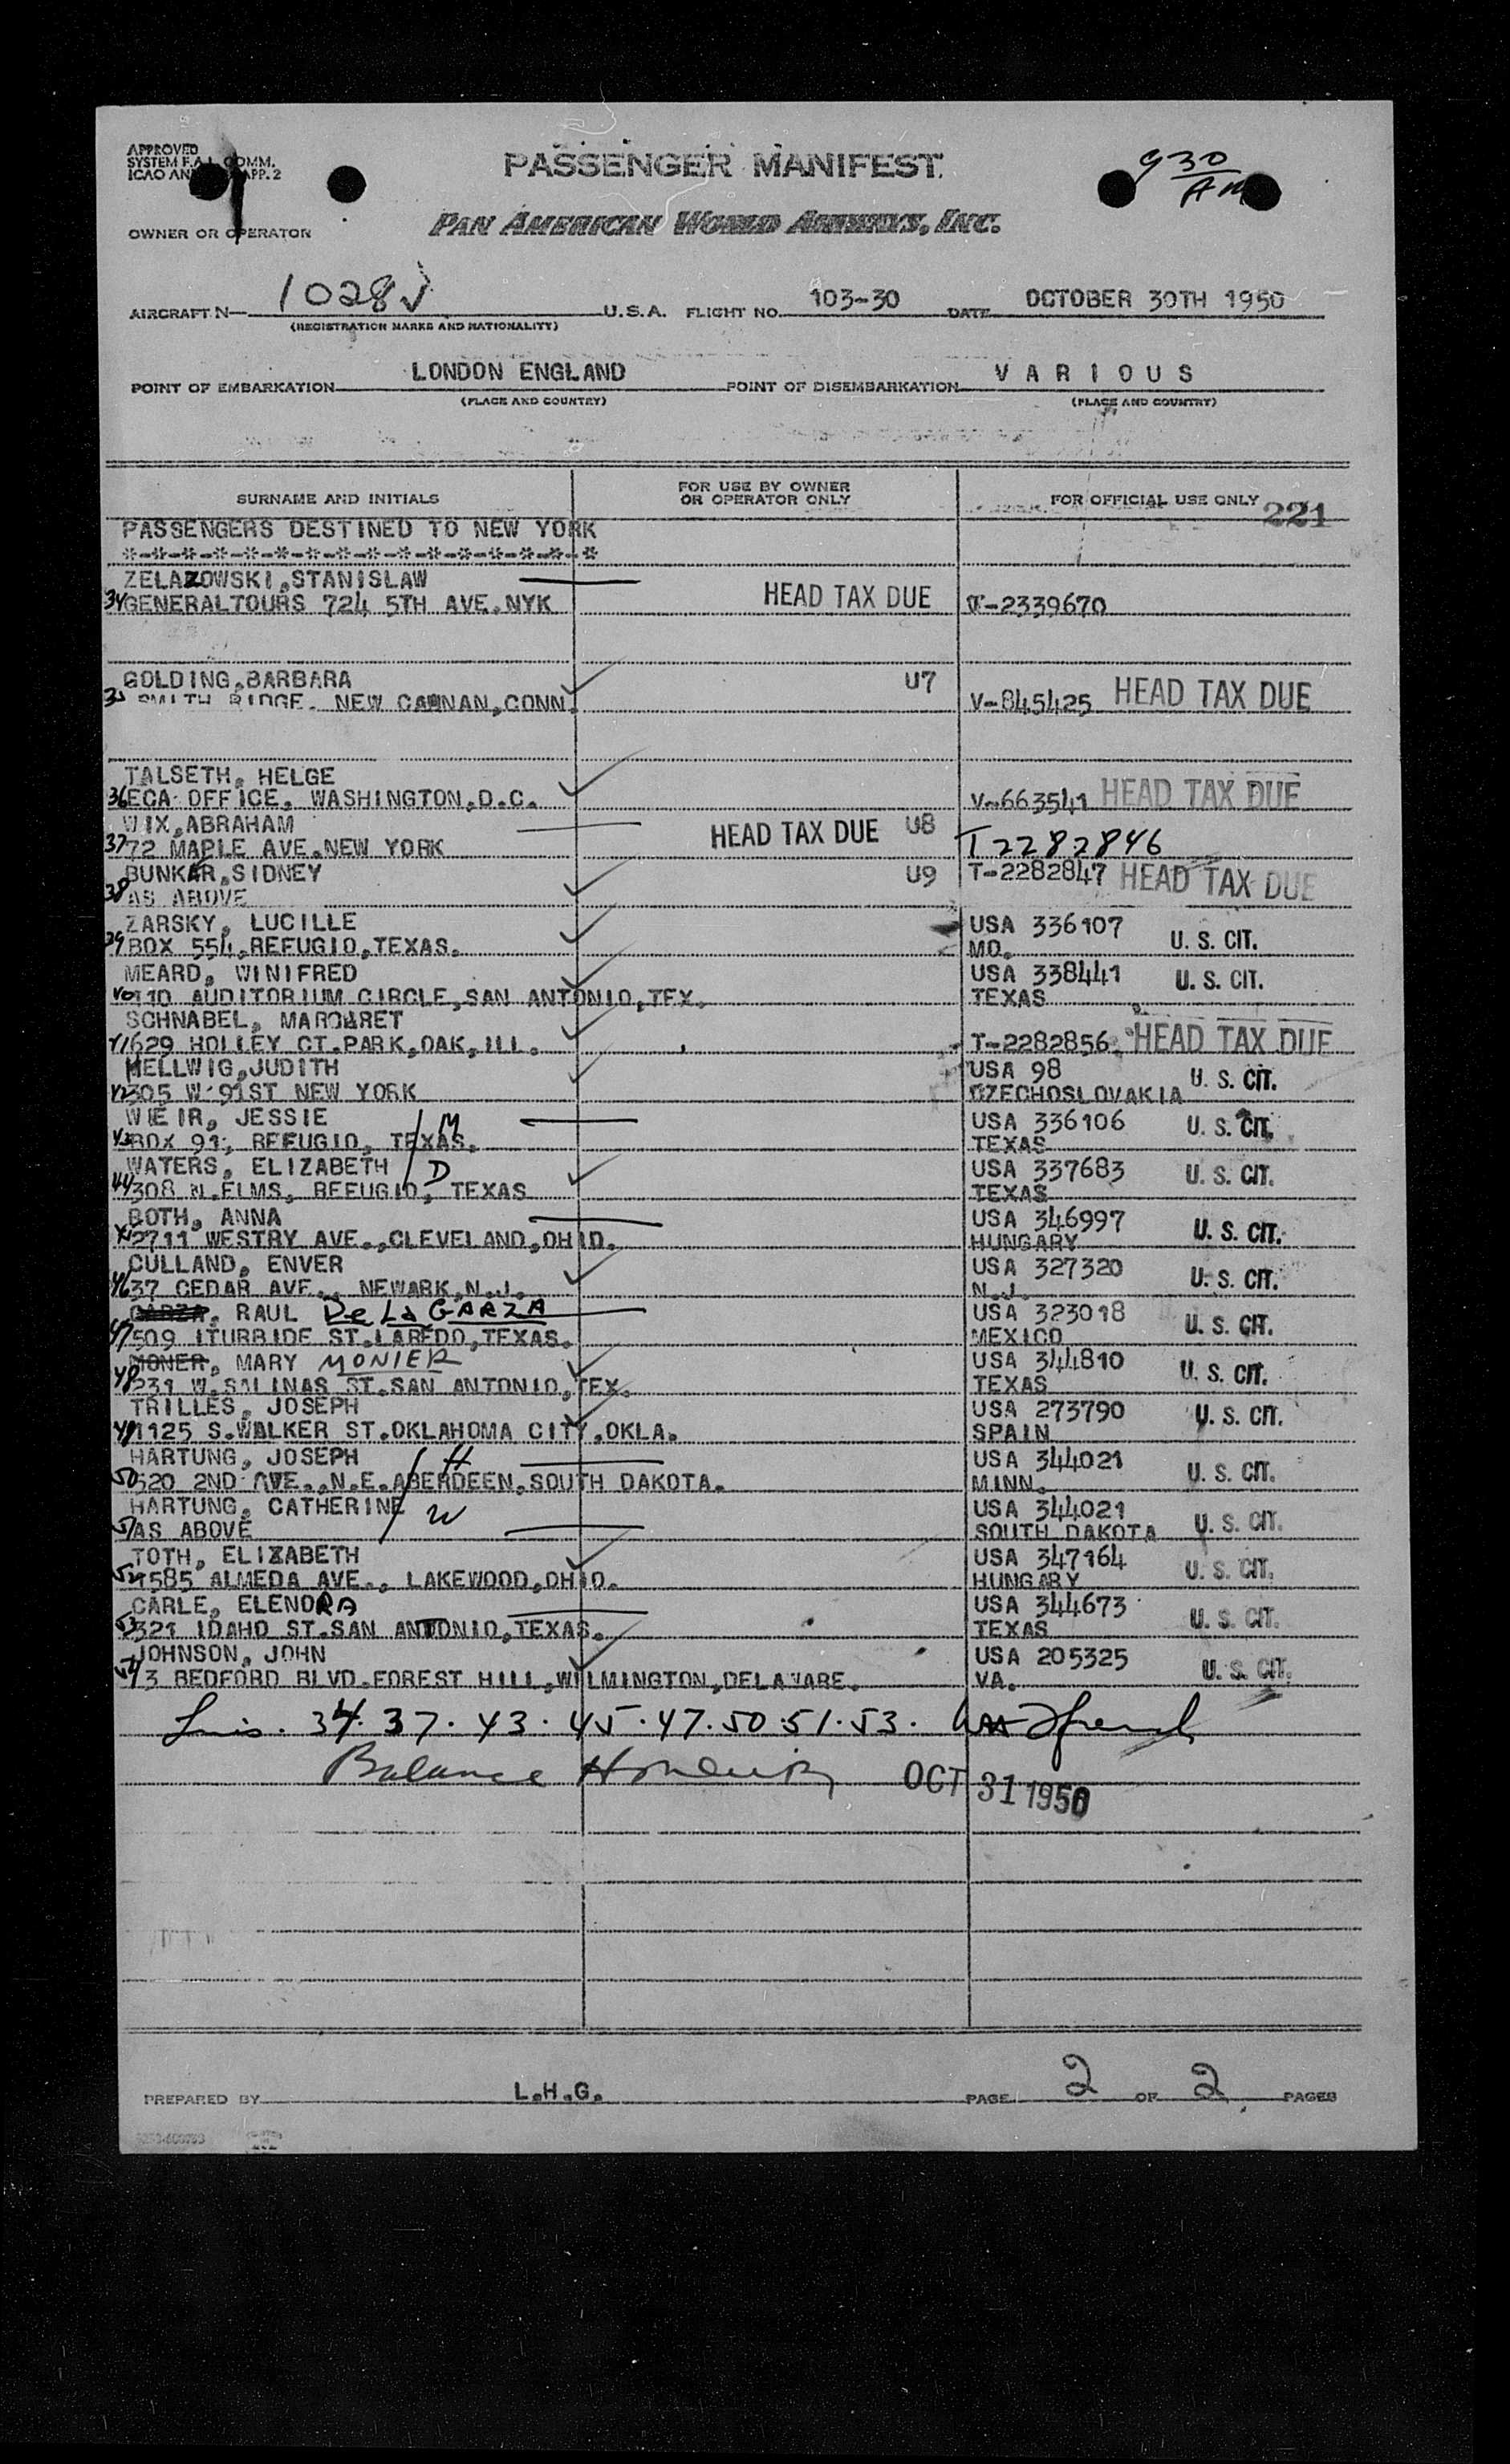 APPROVED
SYSTEM F.A.L. COMM.
ICAO APP. 2
PASSENGER MANIFEST
9 30 AM
OWNER OR OPERATOR PAN AMERICAN WORLD AIRWAYS, INC.
AIRCRAFT N— 1028V U.S.A. FLIGHT NO. 103-30 DATE OCTOBER 30TH 1950
(REGISTRATION MARKS AND NATIONALITY)
POINT OF EMBARKATION LONDON ENGLAND POINT OF DISEMBARKATION VARIOUS
(PLACE AND COUNTRY) (PLACE AND COUNTRY)
SURNAME AND INITIALS FOR USE BY OWNER OR OPERATOR ONLY FOR OFFICIAL USE ONLY 221
PASSENGERS DESTINED TO NEW YORK
*-*-*-*-*-*-*-*-*-*-*-*-*-*-*-*
ZELAZOWSKI,STANISLAW
34 GENERALTOURS 724 5TH AVE.NYK HEAD TAX DUE T-2339670
GOLDING,BARBARA U7
35 SMITH RIDGE. NEW CANNAN,CONN. V-845425 HEAD TAX DUE
TALSETH, HELGE
36 ECA OFFICE. WASHINGTON,D.C. V-663541 HEAD TAX DUE
WIX,ABRAHAM HEAD TAX DUE U8
37 72 MAPLE AVE.NEW YORK T2282846
BUNKAR,SIDNEY U9 T-2282847 HEAD TAX DUE
38 AS ABOVE
ZARSKY, LUCILLE USA 336107
39 BOX 554,REFUGIO,TEXAS. MO. U. S. CIT.
MEARD, WINIFRED USA 338441 U. S. CIT.
40 110 AUDITORIUM CIRCLE,SAN ANTONIO,TEX. TEXAS
SCHNABEL, MARGARET
41 629 HOLLEY CT.PARK,OAK,ILL. T-2282856 HEAD TAX DUE
HELLWIG,JUDITH USA 98 U. S. CIT.
42 305 W 91ST NEW YORK CZECHOSLOVAKIA
WEIR, JESSIE / M USA 336106 U. S. CIT.
43 BOX 91, REFUGIO, TEXAS. TEXAS
WATERS, ELIZABETH / D USA 337683 U. S. CIT.
44 308 N.ELMS, REFUGIO, TEXAS TEXAS
BOTH, ANNA USA 346997
45 2711 WESTRY AVE.,CLEVELAND,OHIO. HUNGARY U. S. CIT.
CULLAND, ENVER USA 327320
46 37 CEDAR AVE., NEWARK,N.J. N.J. U. S. CIT.
GARZA, RAUL De La GARZA USA 323018
47 509 ITURBIDE ST.LAREDO,TEXAS. MEXICO U. S. CIT.
MONER, MARY MONIER USA 344810
48 231 W.SALINAS ST.SAN ANTONIO,TEX. TEXAS U. S. CIT.
TRILLES, JOSEPH USA 273790 U. S. CIT.
49 1125 S.WALKER ST.OKLAHOMA CITY,OKLA. SPAIN
HARTUNG, JOSEPH / H USA 344021
50 520 2ND AVE.,N.E.ABERDEEN,SOUTH DAKOTA. MINN. U. S. CIT.
HARTUNG, CATHERINE / W USA 344021
51 AS ABOVE SOUTH DAKOTA U. S. CIT.
TOTH, ELIZABETH USA 347164
52 1585 ALMEDA AVE., LAKEWOOD,OHIO. HUNGARY U. S. CIT.
CARLE, ELENORA USA 344673
53 321 IDAHO ST.SAN ANTONIO,TEXAS. TEXAS U. S. CIT.
JOHNSON, JOHN USA 205325
54 3 BEDFORD BLVD.FOREST HILL,WILMINGTON,DELAWARE. VA. U. S. CIT.
34. 37. 43. 45. 47. 50. 51. 53.
Balance OCT 31 1950
PREPARED BY L.H.G. PAGE 2 OF 2 PAGES